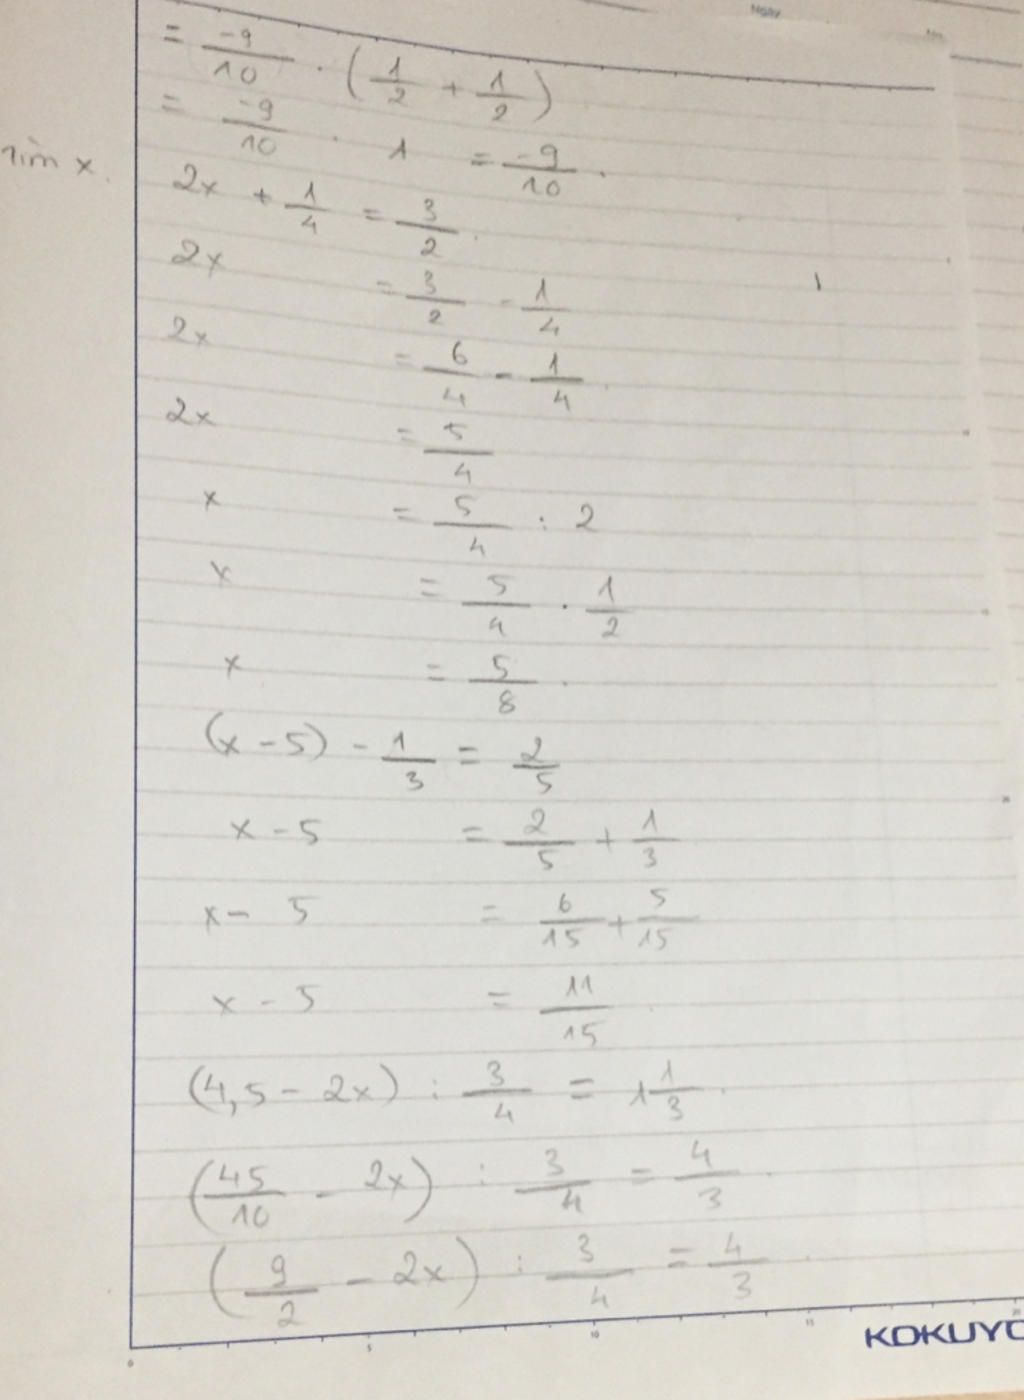 = -9/10 . (1/2 + 1/2)
= -9/10 . 1 = -9/10 .
Tìm x.
2x + 1/4 = 3/2 .
2x = 3/2 - 1/4
2x = 6/4 - 1/4
2x = 5/4
x = 5/4 : 2
x = 5/4 . 1/2
x = 5/8 .
(x - 5) - 1/3 = 2/5
x - 5 = 2/5 + 1/3
x - 5 = 6/15 + 5/15
x - 5 = 11/15
(4,5 - 2x) : 3/4 = 1 1/3 .
(45/10 - 2x) : 3/4 = 4/3 .
(9/2 - 2x) : 3/4 = 4/3 .
0 5 10 15 20
KOKUYO